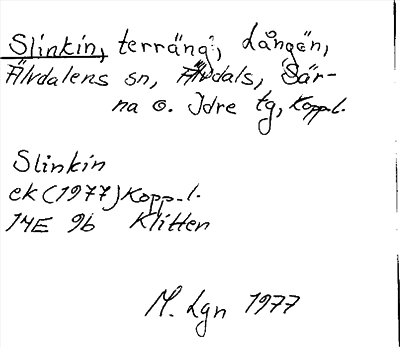 Slinkin, terräng, Långön,
Älvdalens sn, Älvdals, Sär-
na o. Idre tg, Kopp.l.
Slinkin
ek (1977) Kopp.l.
14E 9b Klitten
M. Lgn 1977